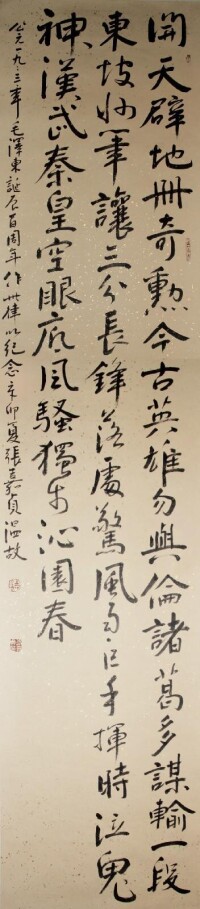 開天辟地此奇勳今古英雄勿與倫諸葛多謀輸一段
東坡妙筆讓三分長鋒落處驚風雨巨手揮時泣鬼
神漢武秦皇空眼底風騷獨步沁園春
公元一九九三年毛澤東誕辰百周年作此律以紀念辛卯夏張嘉貞溫故